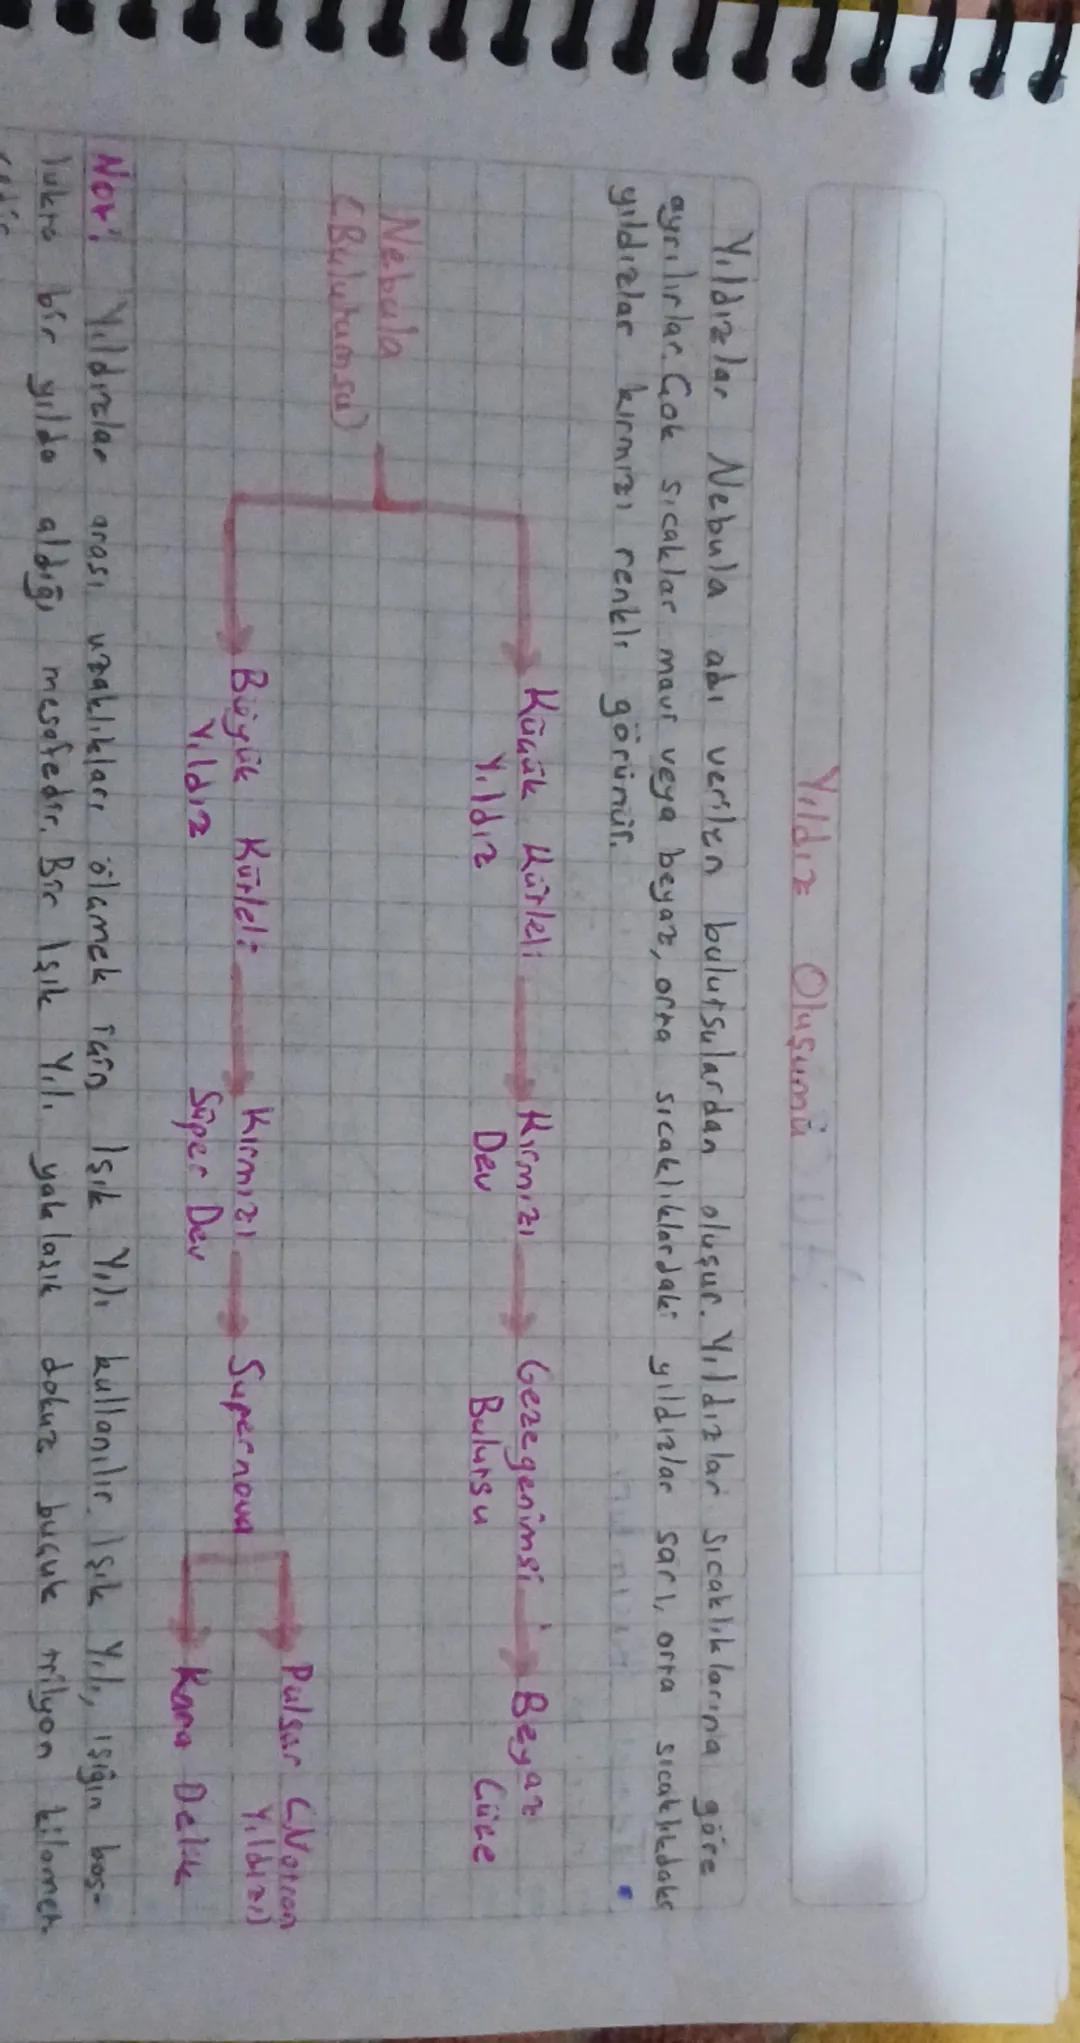 Yıldız Oluşumu
Yıldızlar Nebula adı verilen bulutsulardan oluşur. Yıldızlar sıcaklıklarına göre
ayrılırlar. Çok sıcaklar mavi veya beyaz, orta sıcaklıklardaki yıldızlar sarı, orta sıcaklıkdaki
yıldızlar kırmızı renkli görünür.
Küçük Kütleli Kırmızı Gezegenimsi Beyaz
Yıldız Dev Bulutsu Cüce
Nebula
(Bulutumsu)
Pulsar (Nötron
Büyük Kütleli Kırmızı Supernova Yıldızı)
Yıldız Süper Dev Kara Delik
Not: Yıldızlar arası uzaklıkları ölçmek için Işık Yılı kullanılır. Işık Yılı, ışığın boş-
lukta bir yılda aldığı mesafedir. Bir Işık Yılı yaklaşık dokuz buçuk trilyon kilomet-
redir